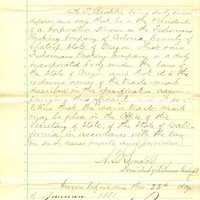 being duly sworn
deposes and say that he is the President
of a corporation known as the Fishermans
Packing Company of Astoria County of
Clatsop State of Oregon. That said
Fishermans Packing Company is a duly
incorporated body under the laws of
the State of Oregon and that it is the
owner of the trade-mark
described in the specification
this affidavit
that the same trade-mark
may be filed in the Office of the
Secretary of State of the State of
in accordance with the law
in such cases made and provided
Sworn before me this 25th day
of January 1881